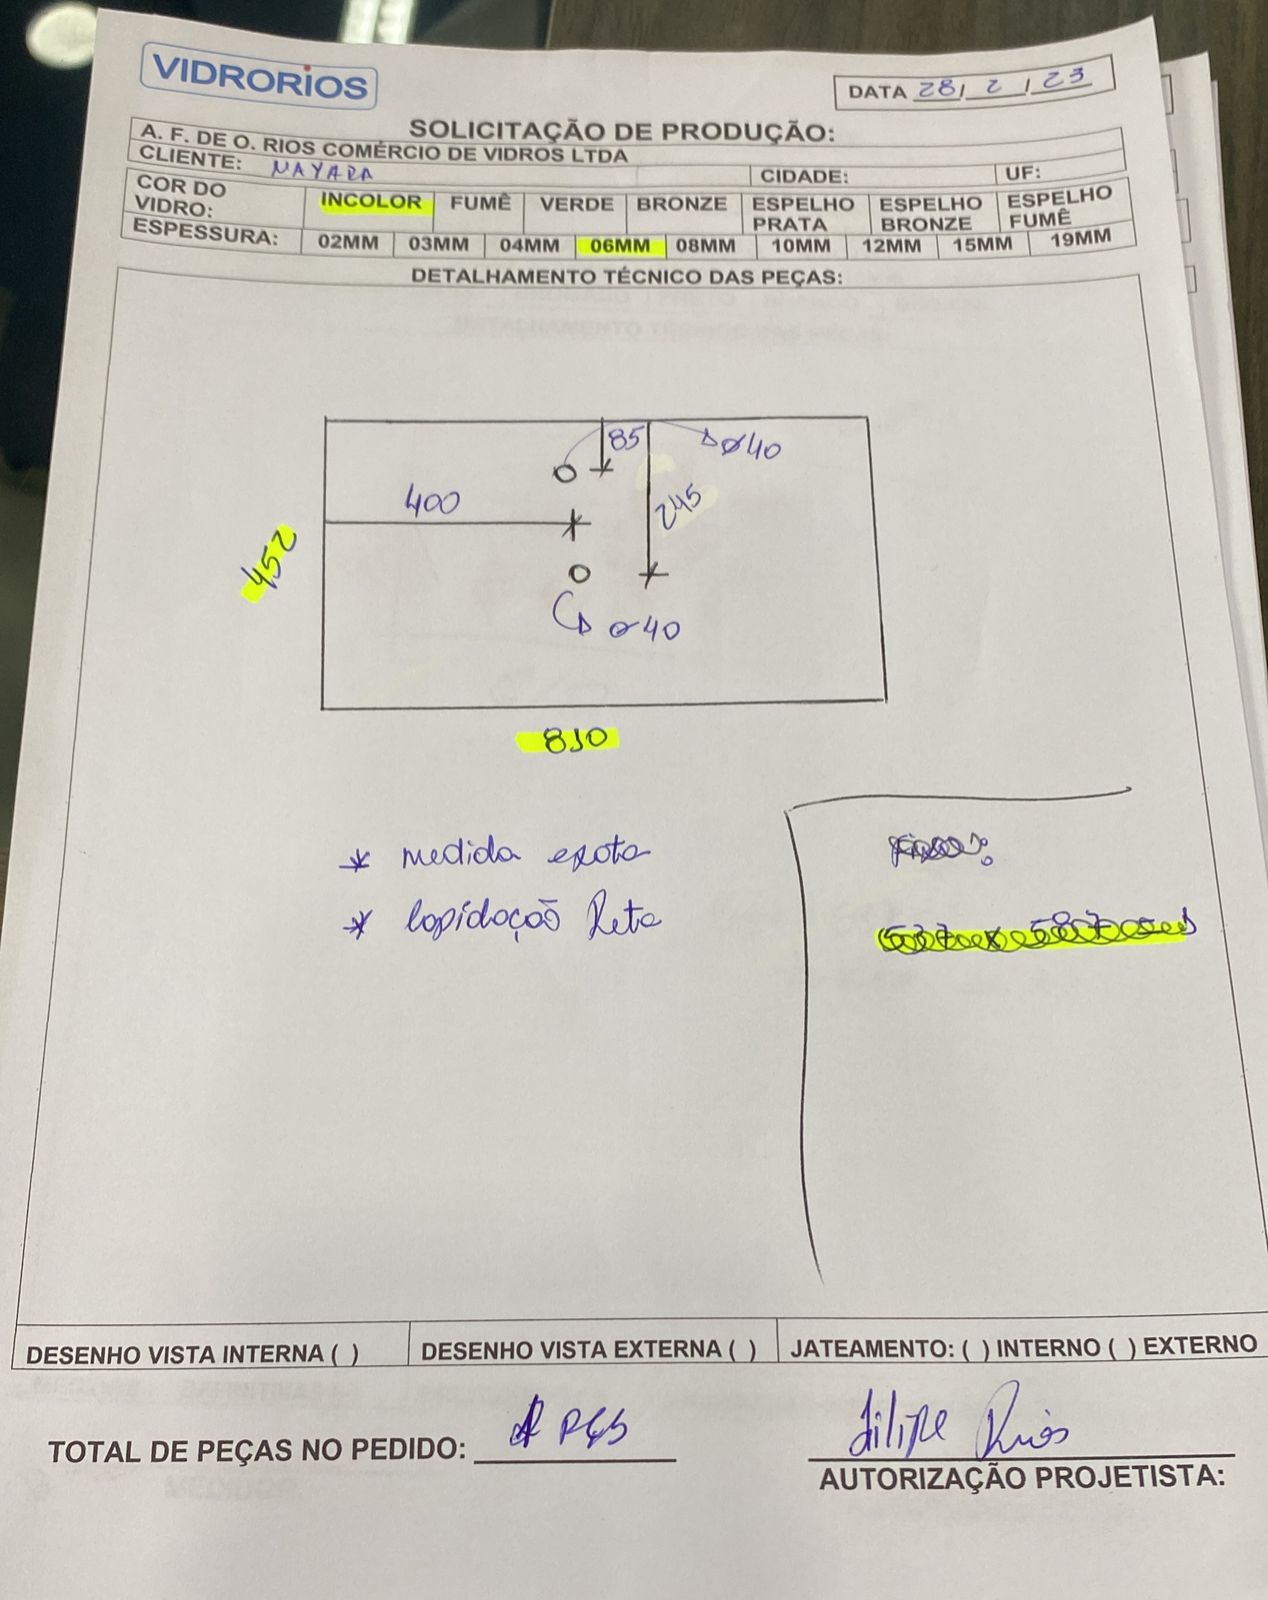 VIDRORIOS
DATA 28/ 2 / 23
SOLICITAÇÃO DE PRODUÇÃO:
A. F. DE O. RIOS COMÉRCIO DE VIDROS LTDA
CLIENTE: NAYARA CIDADE: UF:
COR DO VIDRO: INCOLOR FUMÊ VERDE BRONZE ESPELHO PRATA ESPELHO BRONZE ESPELHO FUMÊ
ESPESSURA: 02MM 03MM 04MM 06MM 08MM 10MM 12MM 15MM 19MM
DETALHAMENTO TÉCNICO DAS PEÇAS:
85 ø40
400
245
452
ø40
810
* medida exata
* lapidação Reta
DESENHO VISTA INTERNA ( ) DESENHO VISTA EXTERNA ( ) JATEAMENTO: ( ) INTERNO ( ) EXTERNO
TOTAL DE PEÇAS NO PEDIDO: PÇS
Filipe Rios
AUTORIZAÇÃO PROJETISTA: